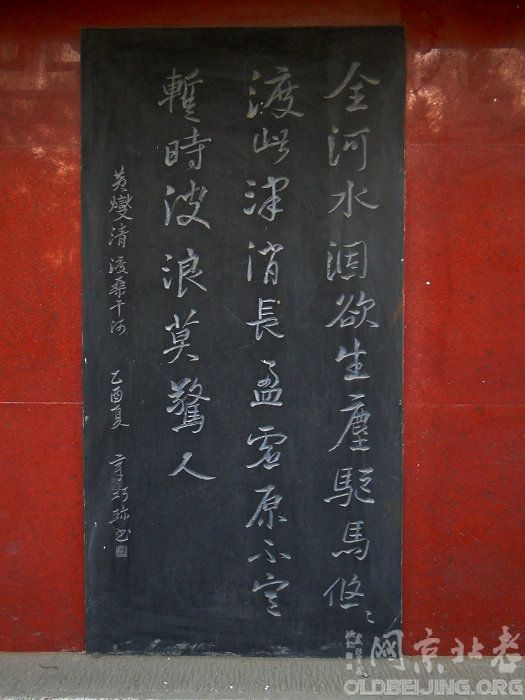 全河水涸欲生塵駝馬悠〻
渡此津消長盈虛原不定
暫時波浪莫驚人
黃燮清渡桑干河 乙酉夏 巧珍书
老北京网
OLDBEIJING.ORG